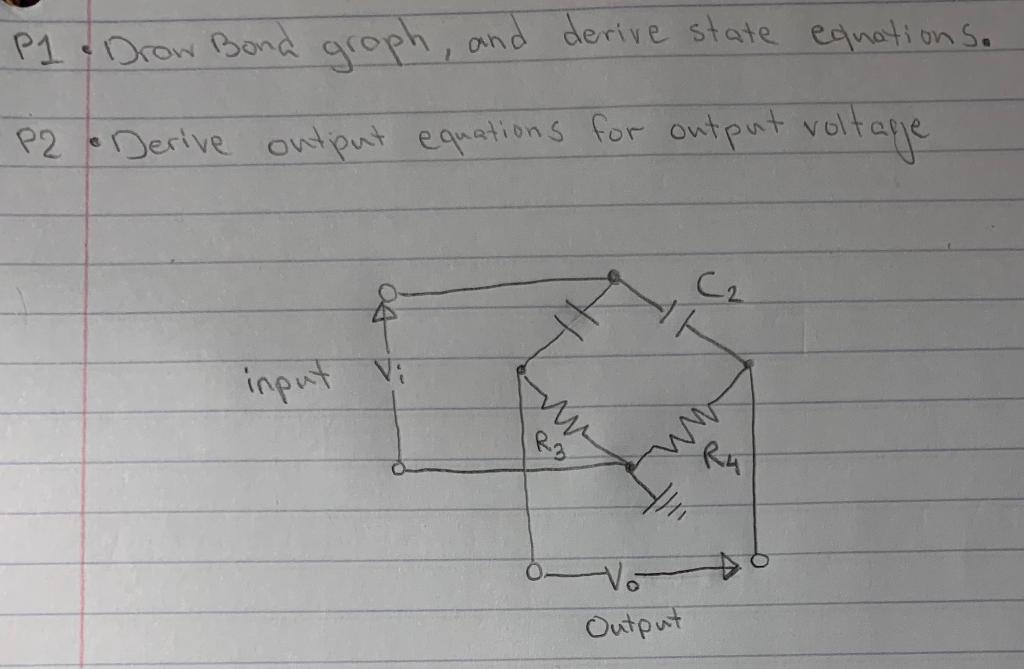 P1 • Draw Bond graph, and derive state equations.
P2 • Derive output equations for output voltage
C2
input Vi
R3
R4
Vo
Output